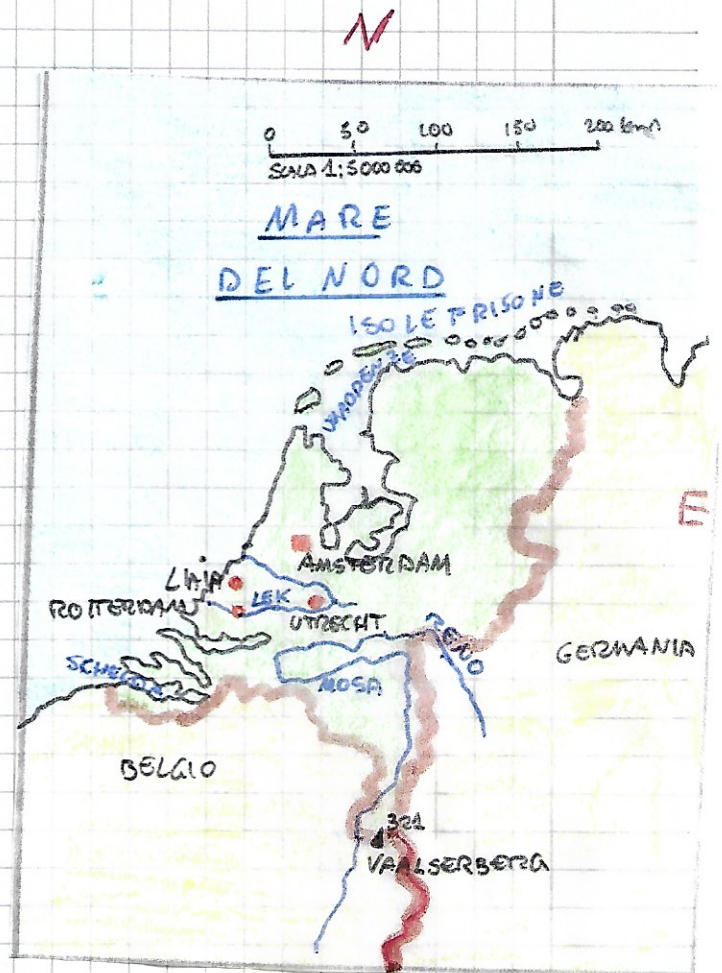 N
0 50 100 150 200 km
SCALA 1:5000 000
MARE
DEL NORD
ISOLE FRISONE
E
AMSTERDAM
L'AIA
LEK
ROTTERDAM
UTRECHT
RENO
GERMANIA
SCHELDA
MOSA
BELGIO
321
VAALSERBERG